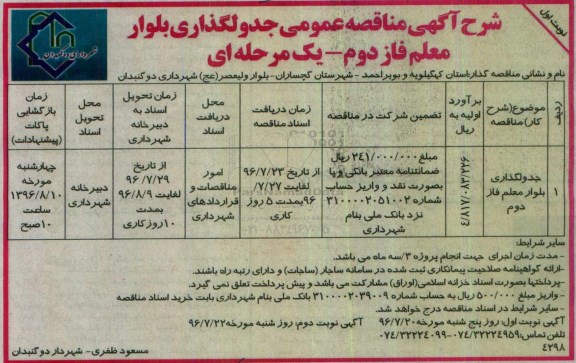 نوبت اول
شرح آگهی مناقصه عمومی جدولگذاری بلوار
معلم فاز دوم - یک مرحله ای
شهرداری دوگنبدان
نام و نشانی مناقصه گذار:استان کهگیلویه و بویراحمد - شهرستان گچساران- بلوار ولیعصر(عج) شهرداری دوگنبدان
ردیف
موضوع(شرح کار)مناقصه
برآورد اولیه به ریال
تضمین شرکت در مناقصه
زمان دریافت اسناد مناقصه
محل دریافت اسناد
زمان تحویل اسناد به دبیرخانه شهرداری
محل تحویل اسناد
زمان بازگشایی پاکات (پیشنهادات)
۱
جدولگذاری بلوار معلم فاز دوم
۴/۸۱۷/۰۸۳/۲۲۶
مبلغ ۲۴۱/۰۰۰/۰۰۰ ریال
ضمانتنامه معتبر بانکی و یا
بصورت نقد و واریز حساب
شماره ۳۱۰۰۰۰۲۰۵۱۰۰۲
نزد بانک ملی بنام
شهرداری
از تاریخ ۹۶/۷/۲۳
لغایت ۷/۲۷/
۹۶بمدت ۵ روز
کاری
امور
مناقصات و
قراردادهای
شهرداری
از تاریخ
۹۶/۷/۲۹
لغایت ۹۶/۸/۹
بمدت
۱۰روزکاری
دبیرخانه
شهرداری
چهارشنبه
مورخه
۱۳۹۶/۸/۱۰
ساعت
۱۰صبح
سایر شرایط:
- مدت زمان اجرای جهت انجام پروژه ۳/سه ماه می باشد.
-ارائه گواهینامه صلاحیت پیمانکاری ثبت شده در سامانه ساجار (ساجات) و دارای رتبه راه باشند.
-پرداختها بصورت اسناد خزانه اسلامی(اوراق) مشارکت می باشد و پیش پرداخت تعلق نمی گیرد.
- واریز مبلغ ۵۰۰/۰۰۰ ریال به حساب شماره ۳۱۰۰۰۰۲۰۳۹۰۰۹ بانک ملی بنام شهرداری بابت خرید اسناد مناقصه
- سایر شرایط در اسناد مناقصه درج خواهد شد.
آگهی نوبت اول: روز پنج شنبه مورخه۹۶/۷/۲۰ آگهی نوبت دوم: روز شنبه مورخه۹۶/۷/۲۲
تلفن تماس:۰۷۴/۳۲۲۲۴۹۵۹-۰۷۴/۳۲۲۲۴۰۹۹
۴۲۹۸
مسعود ظفری- شهردار دوگنبدان